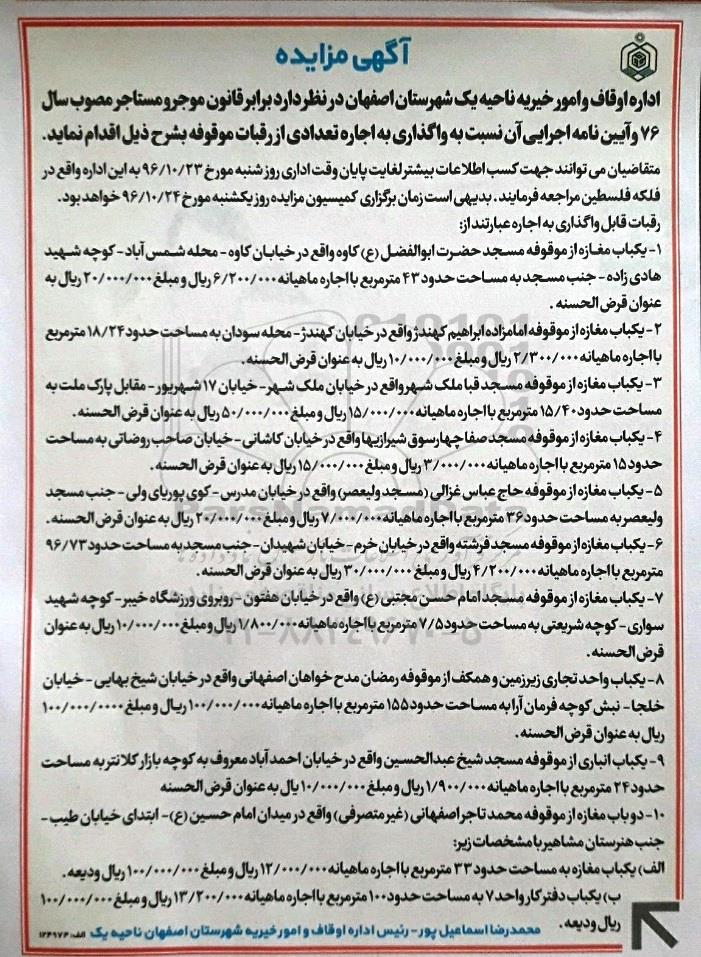 آگهی مزایده
اداره اوقاف و امور خیریه ناحیه یک شهرستان اصفهان در نظر دارد برابر قانون موجر و مستاجر مصوب سال
۷۶ و آیین نامه اجرایی آن نسبت به واگذاری به اجاره تعدادی از رقبات موقوفه بشرح ذیل اقدام نماید.
متقاضیان می توانند جهت کسب اطلاعات بیشتر لغایت پایان وقت اداری روز شنبه مورخ ۹۶/۱۰/۲۳ به این اداره واقع در
فلکه فلسطین مراجعه فرمایند. بدیهی است زمان برگزاری کمیسیون مزایده روز یکشنبه مورخ ۹۶/۱۰/۲۴ خواهد بود.
رقبات قابل واگذاری به اجاره عبارتند از:
۱- یکباب مغازه از موقوفه مسجد حضرت ابوالفضل (ع) کاوه واقع در خیابان کاوه - محله شمس آباد - کوچه شهید
هادی زاده - جنب مسجد به مساحت حدود ۴۳ مترمربع با اجاره ماهیانه ۶/۲۰۰/۰۰۰ ریال و مبلغ ۲۰/۰۰۰/۰۰۰ ریال به
عنوان قرض الحسنه .
۲- یکباب مغازه از موقوفه امامزاده ابراهیم کهندژ واقع در خیابان کهندژ - محله سودان به مساحت حدود ۱۸/۲۴ مترمربع
با اجاره ماهیانه ۲/۳۰۰/۰۰۰ ریال و مبلغ ۱۰/۰۰۰/۰۰۰ ریال به عنوان قرض الحسنه.
۳- یکباب مغازه از موقوفه مسجد قبا ملک شهر واقع در خیابان ملک شهر - خیابان ۱۷ شهریور - مقابل پارک ملت به
مساحت حدود ۱۵/۴۰ مترمربع با اجاره ماهیانه ۱۵/۰۰۰/۰۰۰ ریال و مبلغ ۵۰/۰۰۰/۰۰۰ ریال به عنوان قرض الحسنه.
۴- یکباب مغازه از موقوفه مسجد صفا چهارسوق شیرازیها واقع در خیابان کاشانی - خیابان صاحب روضاتی به مساحت
حدود ۱۵ مترمربع با اجاره ماهیانه ۳/۰۰۰/۰۰۰ ریال و مبلغ ۱۵/۰۰۰/۰۰۰ ریال به عنوان قرض الحسنه .
۵- یکباب مغازه از موقوفه حاج عباس غزالی (مسجد ولیعصر) واقع در خیابان مدرس - کوی پوریای ولی - جنب مسجد
ولیعصر به مساحت حدود ۳۶ مترمربع با اجاره ماهیانه ۷/۰۰۰/۰۰۰ ریال و مبلغ ۲۰/۰۰۰/۰۰۰ ریال به عنوان قرض الحسنه .
۶- یکباب مغازه از موقوفه مسجد فرشته واقع در خیابان خرم - خیابان شهیدان - جنب مسجد به مساحت حدود ۹۶/۷۳
مترمربع با اجاره ماهیانه ۴/۲۰۰/۰۰۰ ریال و مبلغ ۳۰/۰۰۰/۰۰۰ ریال به عنوان قرض الحسنه.
۷- یکباب مغازه از موقوفه مسجد امام حسن مجتبی (ع) واقع در خیابان هفتون - روبروی ورزشگاه خیبر - کوچه شهید
سواری - کوچه شریعتی به مساحت حدود ۷/۵ مترمربع با اجاره ماهیانه ۱/۸۰۰/۰۰۰ ریال و مبلغ ۱۰/۰۰۰/۰۰۰ ریال به عنوان
قرض الحسنه.
۸- یکباب واحد تجاری زیرزمین و همکف از موقوفه رمضان مدح خواهان اصفهانی واقع در خیابان شیخ بهایی - خیابان
خلجا - نبش کوچه فرمان آرا به مساحت حدود ۱۵۵ مترمربع با اجاره ماهیانه ۱۰۰/۰۰۰/۰۰۰ ریال و مبلغ ۱۰۰/۰۰۰/۰۰۰۰
ریال به عنوان قرض الحسنه.
۹- یکباب انباری از موقوفه مسجد شیخ عبدالحسین واقع در خیابان احمد آباد معروف به کوچه بازار کلانتر به مساحت
حدود ۲۴ مترمربع با اجاره ماهیانه ۱/۹۰۰/۰۰۰ ریال و مبلغ ۱۰/۰۰۰/۰۰۰ یال به عنوان قرض الحسنه
۱۰- دو باب مغازه از موقوفه محمد تاجر اصفهانی (غیر متصرفی) واقع در میدان امام حسین (ع) - ابتدای خیابان طیب -
جنب هنرستان مشاهیر با مشخصات زیر:
الف) یکباب مغازه به مساحت حدود ۳۳ مترمربع با اجاره ماهیانه ۱۲/۰۰۰/۰۰۰ ریال و مبلغ ۱۰۰/۰۰۰/۰۰۰ ریال ودیعه.
ب) یکباب دفتر کار واحد ۷ به مساحت حدود ۱۰۰ مترمربع با اجاره ماهیانه ۱۳/۲۰۰/۰۰۰ ریال و مبلغ ۱۰۰/۰۰۰/۰۰۰
ریال ودیعه .
محمدرضا اسماعیل پور - رئیس اداره اوقاف و امور خیریه شهرستان اصفهان ناحیه یک الف: ۱۲۴۹۷۴
ParsNamadData